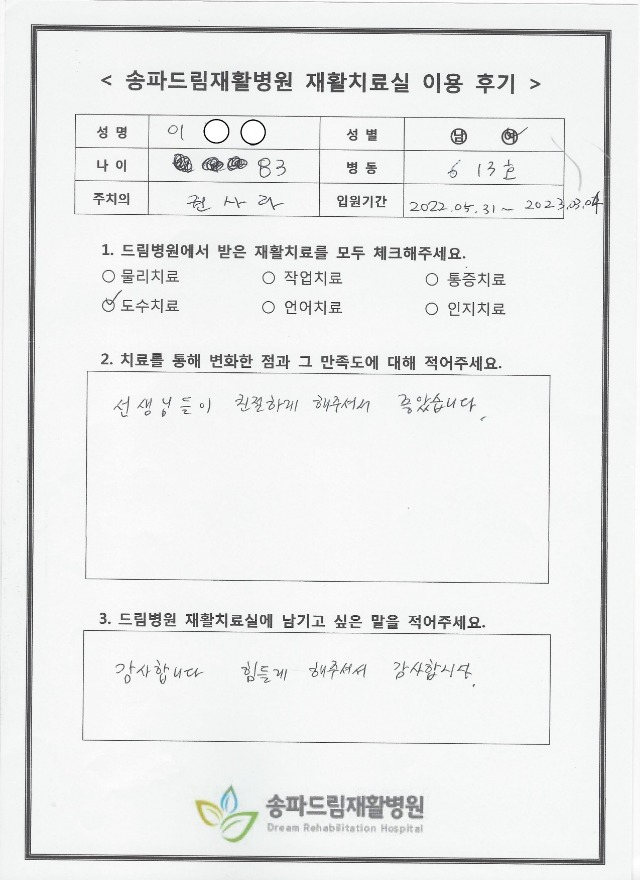 < 송파드림재활병원 재활치료실 이용 후기 >
성 명 이 성 별 남 여
나 이 83 병 동 613호
주치의 권사라 입원기간 2022.05.31~ 2023.03.04
1. 드림병원에서 받은 재활치료를 모두 체크해주세요.
물리치료 작업치료 통증치료
도수치료 언어치료 인지치료
2. 치료를 통해 변화한 점과 그 만족도에 대해 적어주세요.
선생님들이 친절하게 해주셔서 좋았습니다.
3. 드림병원 재활치료실에 남기고 싶은 말을 적어주세요.
감사합니다 힘들게 해주셔서 감사합니다.
송파드림재활병원
Dream Rehabilitation Hospital